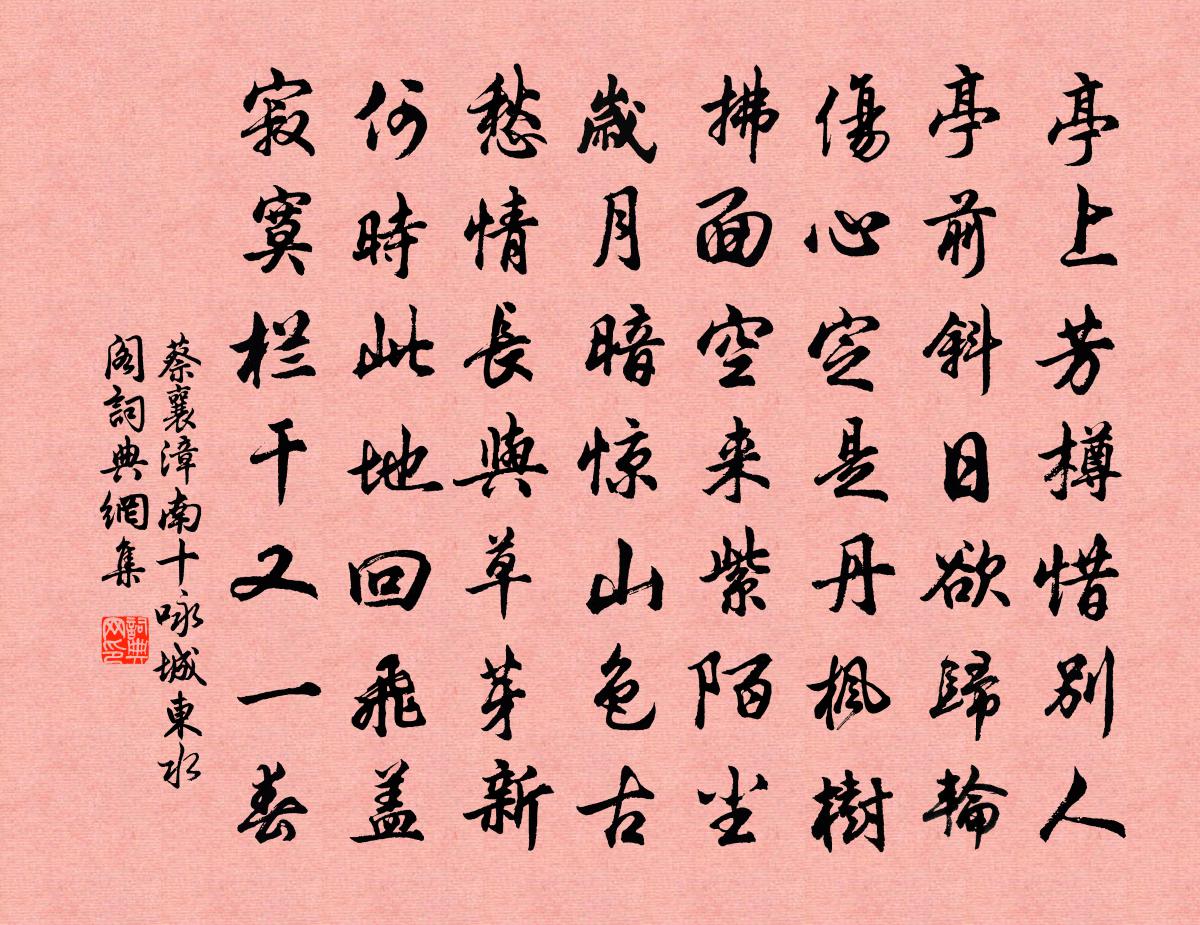 亭上芳樽惜别人
亭前斜日欲歸輪
傷心定是丹楓樹
拂面空来紫陌尘
歲月暗惊山色古
愁情長與草芽新
何時此地回飛盖
寂寞栏干又一春
蔡襄漳南十咏城東水
阁詞典網集
詞典网印